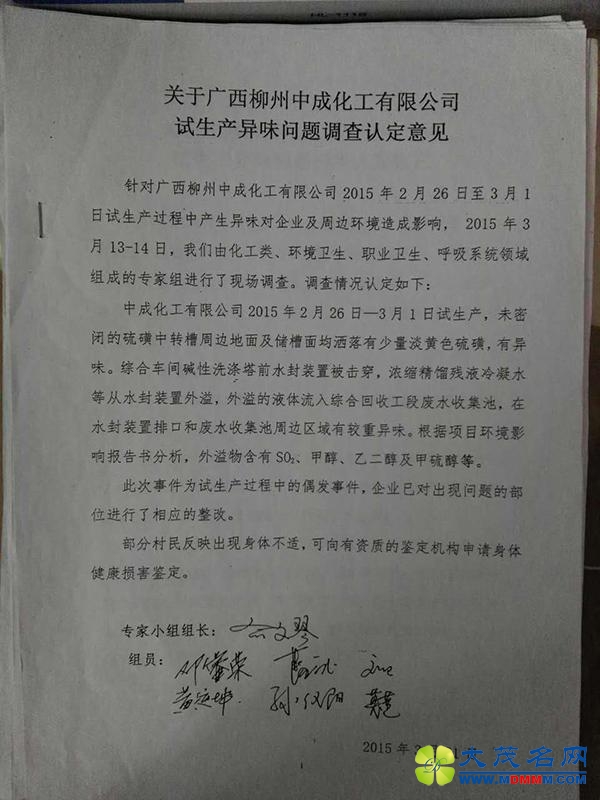 关于广西柳州中成化工有限公司
试生产异味问题调查认定意见
针对广西柳州中成化工有限公司 2015 年 2 月 26 日至 3 月 1
日试生产过程中产生异味对企业及周边环境造成影响， 2015 年 3
月 13-14 日，我们由化工类、环境卫生、职业卫生、呼吸系统领域
组成的专家组进行了现场调查。调查情况认定如下：
中成化工有限公司 2015 年 2 月 26 日—3 月 1 日试生产，未密
闭的硫磺中转槽周边地面及储槽面均洒落有少量淡黄色硫磺，有异
味。综合车间碱性洗涤塔前水封装置被击穿，浓缩精馏残液冷凝水
等从水封装置外溢，外溢的液体流入综合回收工段废水收集池，在
水封装置排口和废水收集池周边区域有较重异味。根据项目环境影
响报告书分析，外溢物含有 SO₂、甲醇、乙二醇及甲硫醇等。
此次事件为试生产过程中的偶发事件，企业已对出现问题的部
位进行了相应的整改。
部分村民反映出现身体不适，可向有资质的鉴定机构申请身体
健康损害鉴定。
专家小组组长：
组员：
孙仪阳
2015 年
1
大茂名网
www.MBMMM.com